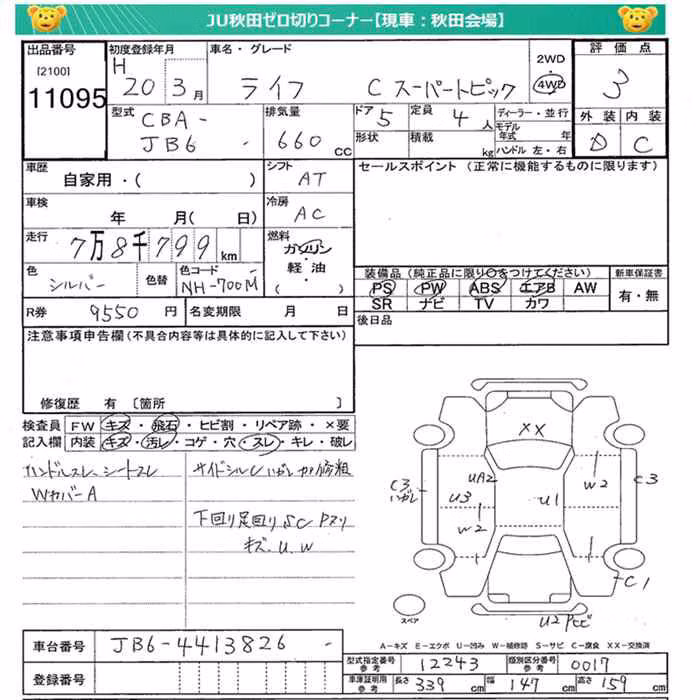 JU秋田ゼロ切りコーナー【現車：秋田会場】
出品番号 初度登録年月 車名・グレード 評価点
[2100] H 20 3月 ライフ C スーパートピック 2WD 4WD 3
11095
型式 CBA- JB6 - 排気量 660 cc ドア 5 定員 4人 ディーラー・並行 外装 内装
形状 積載 kg モデル年式 年 D C
ハンドル 左・右
車歴 自家用・( ) シフト AT セールスポイント (正常に機能するものに限ります)
車検 年 月( 日) 冷房 AC
走行 7万8千799km 燃料 ガソリン 軽油 ( )
色 シルバー 色替 色コード NH-700M 装備品(純正品に限り〇をつけてください) 新車保証書
PS PW ABS エアB AW 有・無
SR ナビ TV カワ
R券 9550 円 名変期限 月 日 後日品
注意事項申告欄(不具合内容等は具体的に記入して下さい)
修復歴 有 [箇所 ]
検査員 FW キズ・飛石・ヒビ割・リペア跡・×要
記入欄 内装 キズ・汚レ・コゲ・穴・スレ・キレ・破レ
ハンドルスレ、シートスレ サイドシルC ハガレ カガ修粗
WカバーA
下回り足回りSC Pヌリ
キズ、U、W
XX
C3 ハガレ UA2 W2 C3
U3 U1
W2
C1
スペア U2 Pヒビ
A－キズ E－エクボ U－凹み W－補修跡 S－サビ C－腐食 XX－交換済
車台番号 JB6-4413826 -
型式指定番号 参考 12243 類別区分番号 参考 0017
登録番号 車庫証明用 参考 長さ 339 cm 幅 147 cm 高さ 159 cm